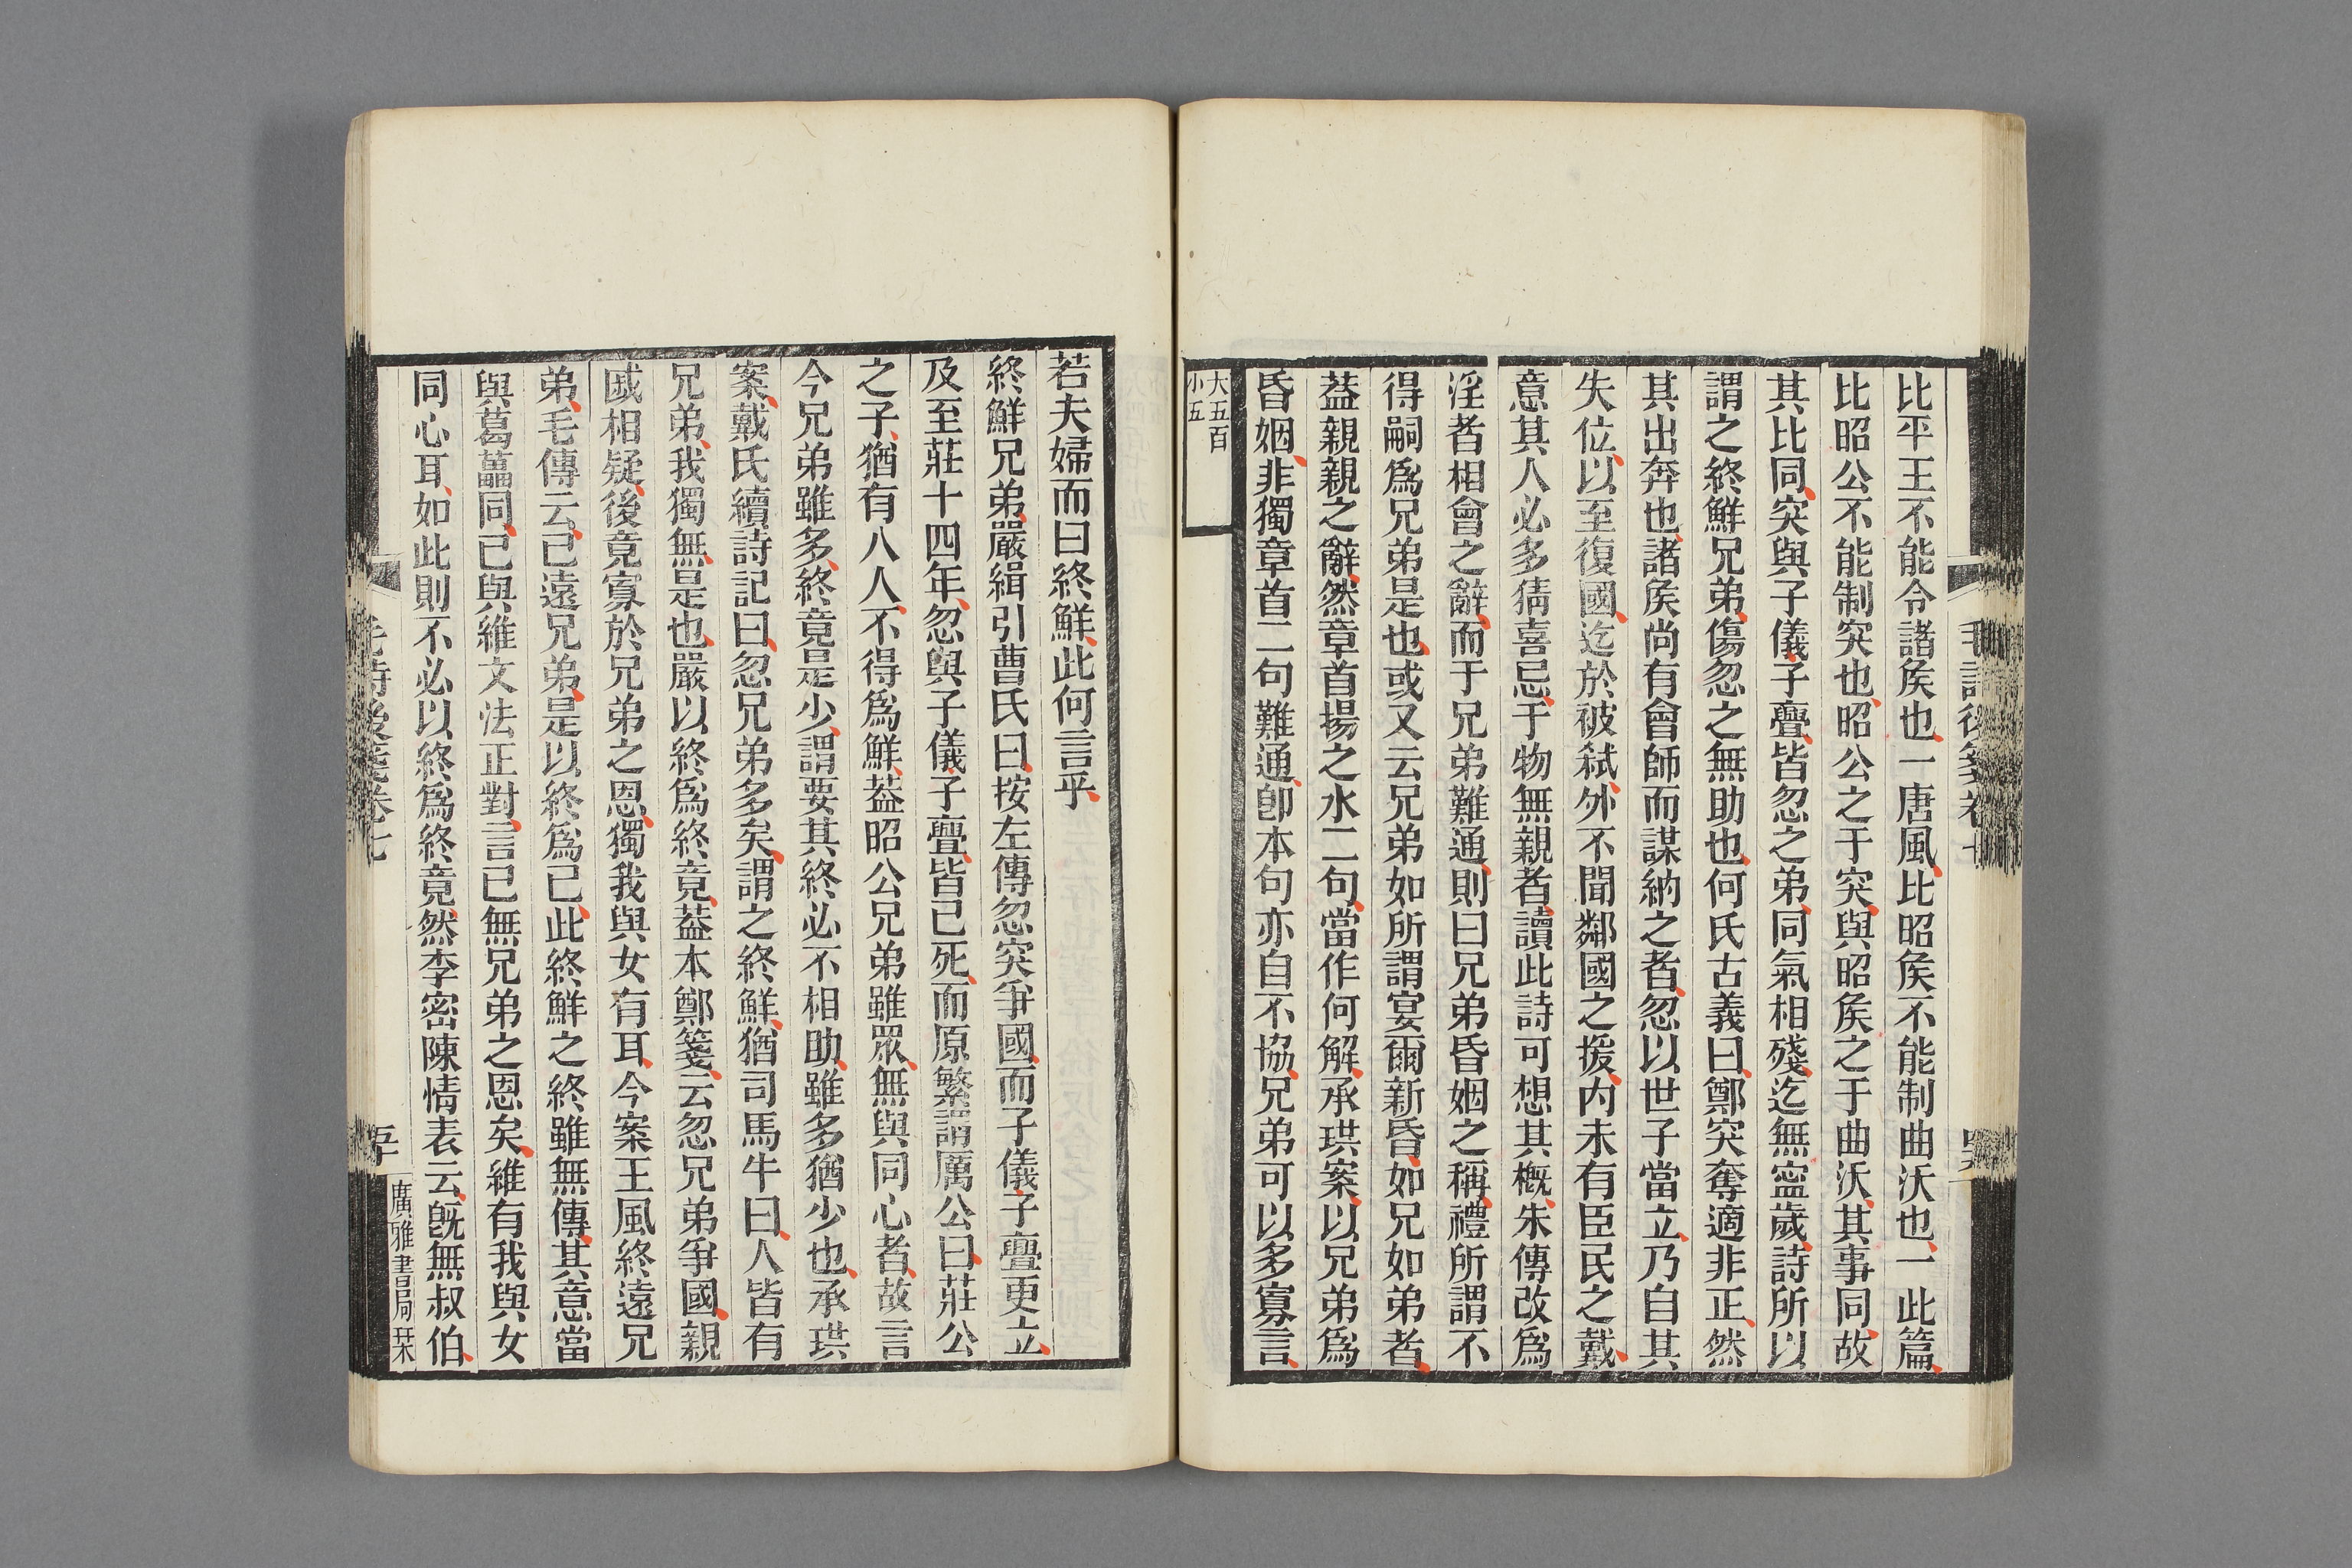 比平王不能令諸矦也一唐風比昭矦不能制曲沃也一此篇
比昭公不能制突也昭公之于突與昭矦之于曲沃其事同故
其比同突與子儀子亹皆忽之弟同氣相殘迄無寍歲詩所以
謂之終鮮兄弟傷忽之無助也何氏古義曰鄭突奪適非正然
其出奔也諸矦尚有會師而謀納之者忽以世子當立乃自其
失位以至復國迄於被弒外不聞鄰國之援内未有臣民之戴
意其人必多猜喜忌于物無親者讀此詩可想其槪朱傳改爲
淫者相會之辭而于兄弟難通則曰兄弟昏姻之稱禮所謂不
得嗣爲兄弟是也或又云兄弟如所謂宴爾新昏如兄如弟者
葢親親之辭然章首揚之水二句當作何解承珙案以兄弟爲
昏姻非獨章首二句難通卽本句亦自不協兄弟可以多寡言
大五百
小五
毛詩後箋卷七
若夫婦而曰終鮮此何言乎
終鮮兄弟嚴緝引曹氏曰按左傳忽突爭國而子儀子亹更立
及至莊十四年忽與子儀子亹皆已死而原繁謂厲公曰莊公
之子猶有八人不得爲鮮葢昭公兄弟雖眾無與同心者故言
今兄弟雖多終竟是少謂要其終必不相助雖多猶少也承珙
案戴氏續詩記曰忽兄弟多矣謂之終鮮猶司馬牛曰人皆有
兄弟我獨無是也嚴以終爲終竟葢本鄭箋云忽兄弟爭國親
戚相疑後竟寡於兄弟之恩獨我與女有耳今案王風終遠兄
弟毛傳云已遠兄弟是以終爲已此終鮮之終雖無傳其意當
與葛藟同已與維文法正對言已無兄弟之恩矣維有我與女
同心耳如此則不必以終爲終竟然李密陳情表云旣無叔伯
毛詩後箋卷七
五十
廣雅書局栞